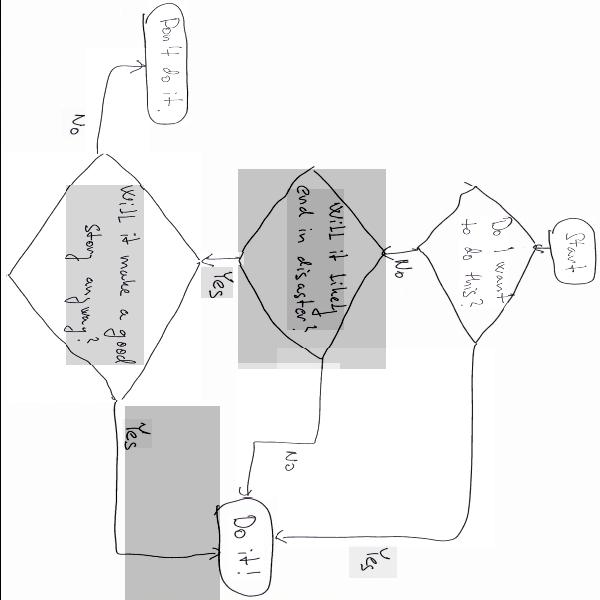 Start
Do I want
to do this?
Yes
No
Will it likely
end in disaster?
No
Yes
Will it make a good
story anyway?
Yes
No
Do it!
Don't do it.